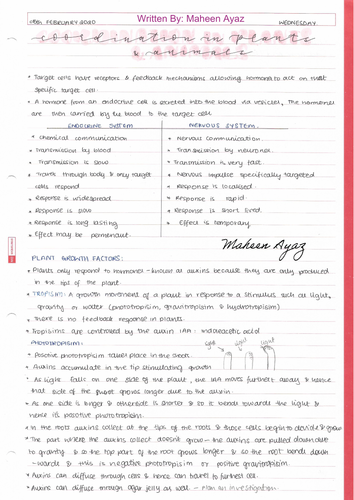 05th FEBRUARY 2020
Written By: Maheen Ayaz
WEDNESDAY
Coordination in Plants
& animals
* Target cells have receptors & feedback mechanisms allowing hormone to act on
specific target cell.
* A hormone from an endocrine cell is secreted into the blood via vesicles. The hormones
are then carried by the blood to the target cells
ENDOCRINE SYSTEM
NERVOUS SYSTEM.
* chemical communication
* Nervous communication.
* Transmission by blood
* Transmission by neurones.
* Transmission is slow
* Transmission is very fast.
* Travels through body & only target
cells respond
* Nervous impulse specifically targeted
* Response is widespread
* Response is localised.
* Response is slow
* Response is rapid.
* Response is long lasting
* Response is short lived.
* Effect may be permenant.
* Effect is temporary.
Maheen Ayaz
PLANT GROWTH FACTORS:
* Plants only respond to hormones - known as auxins because they are only produced
in the tips of the plant.
* TROPISM: A growth movement of a plant in response to a stimulus such as light,
gravity or water (phototropism, gravitropism & hydrotropism)
* There is no feedback response in plants.
* Tropisms are controlled by the auxin IAA - indoleacetic acid
PHOTOTROPISM:
light
light
light
* Positive phototropism takes place in the shoot.
* Auxins accumulate in the tip stimulating growth.
* As light falls on one side of the plant, the IAA moves furthest away & hence
that side of the shoot grows longer due to the auxin.
* As one side is longer & otherside is shorter & so it bends towards the light &
hence its positive phototropism.
* In the roots auxins collect at the tips of the roots & those cells begin to divide & grow
* The part where the auxins collect doesnt grow - the auxins are pulled down due
to gravity & so the top part of the root grows longer & so the root bends down
-wards & this is negative phototropism or positive gravitropism.
* Auxins can diffuse through cells & hence can travel to furthest cell.
* Auxins can diffuse through agar jelly as well - Plan an investigation